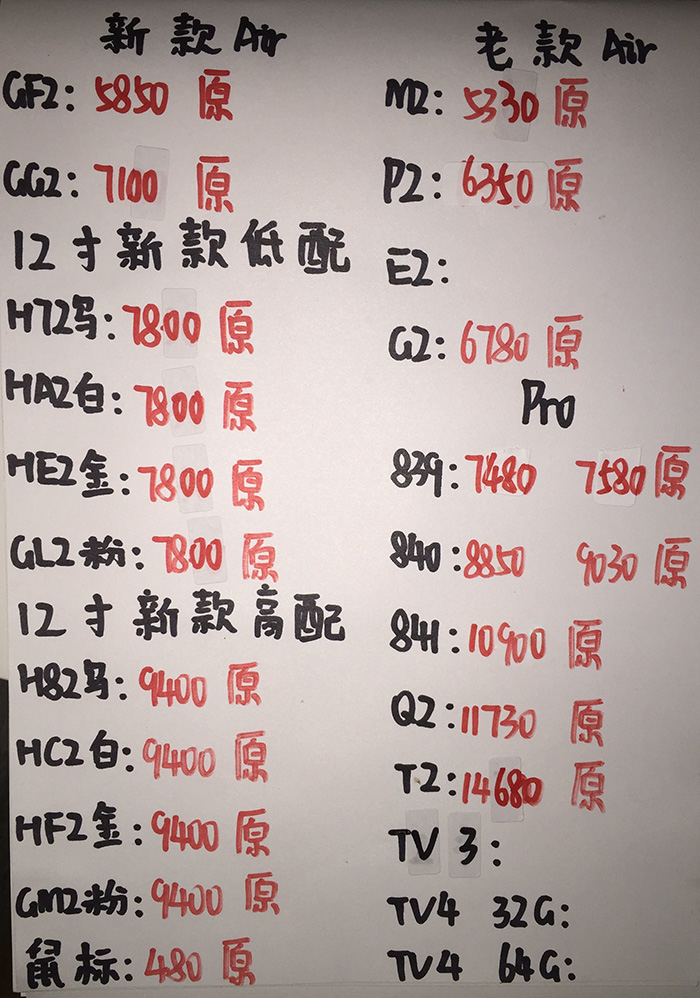 新款Air
GF2: 5850 原
GG2: 7100 原
12寸新款低配
H72乌: 7800 原
HA2白: 7800 原
HE2金: 7800 原
GL2粉: 7800 原
12寸新款高配
H82乌: 9400 原
HC2白: 9400 原
HF2金: 9400 原
GM2粉: 9400 原
鼠标: 480 原
老款Air
M2: 5330 原
P2: 6350 原
E2:
G2: 6780 原
Pro
839: 7480 7580 原
840: 8850 9030 原
841: 10900 原
Q2: 11730 原
T2: 14680 原
TV 3:
TV4 32G:
TV4 64G: